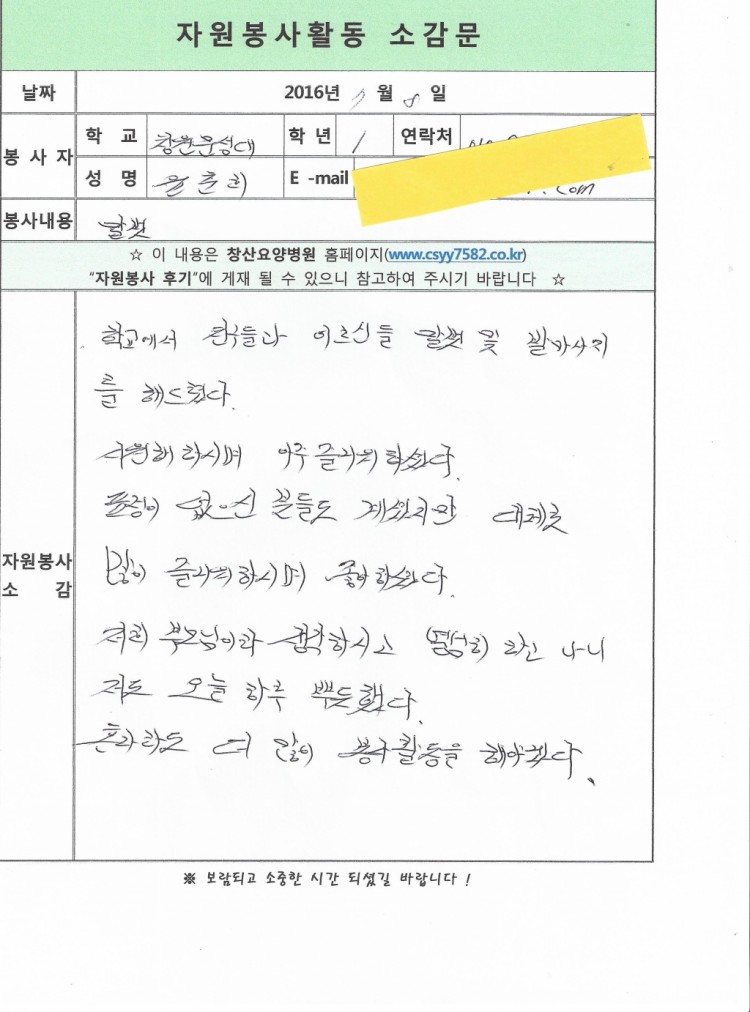 자원봉사활동 소감문
날짜 2016년 7 월 8 일
봉사자 학교 창원문성대 학년 1 연락처
성명 윤춘희 E-mail .com
봉사내용 말벗
☆ 이 내용은 창산요양병원 홈페이지(www.csyy7582.co.kr)
"자원봉사 후기"에 게재 될 수 있으니 참고하여 주시기 바랍니다 ☆
자원봉사 소감
학교에서 친구들과 어르신들 말벗 및 발마사지
를 해드렸다.
시원해 하시며 아주 즐거워 하셨다.
표정이 없으신 분들도 계셨지만 대체로
많이 즐거워하시며 좋아하셨다.
저희 부모님이라 생각하시고 열심히 하고 나니
저도 오늘 하루 뿌듯했다.
혼자라도 더 많이 봉사활동을 해야겠다.
※ 보람되고 소중한 시간 되셨길 바랍니다 !